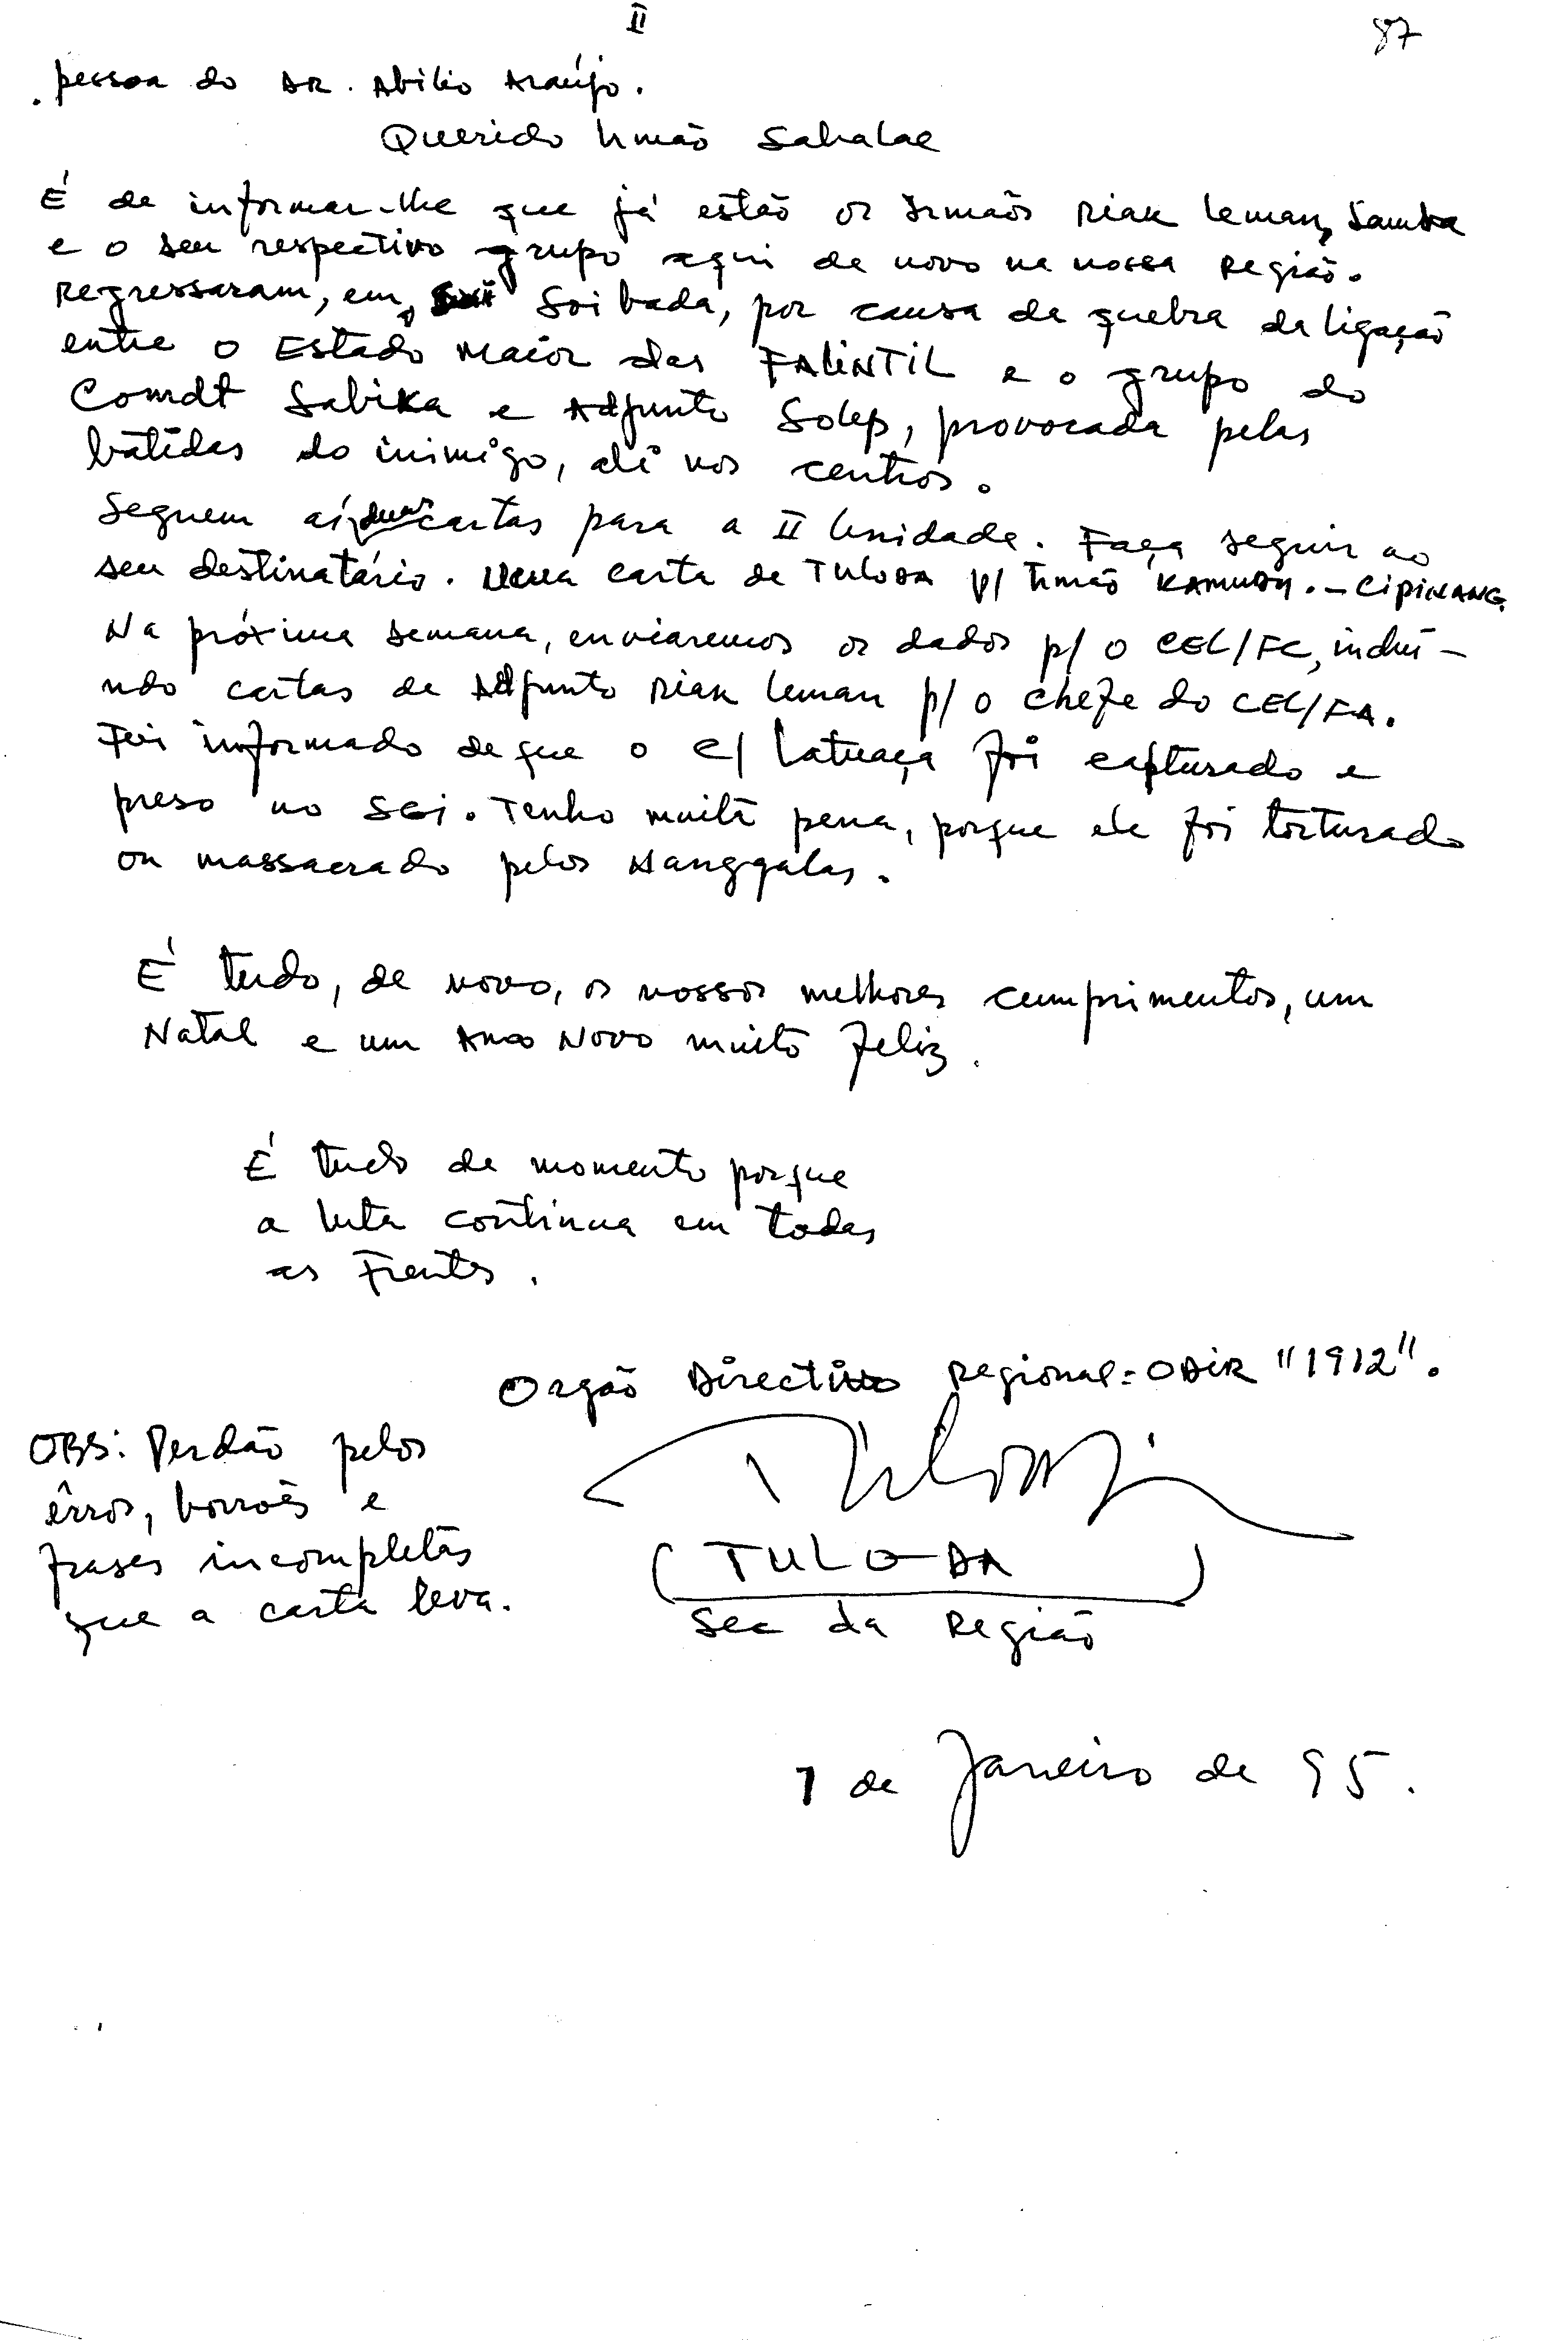 II
87
. pessoa do DR. Abílio Araújo.
Querido Irmão Sahalae
É de informar-lhe que já estão os Irmãos Riak Leman, Samba
e o seu respectivo grupo aqui de novo na nossa Região.
Regressaram, em, Soibada, por causa de quebra da ligação
entre o Estado Maior das FALINTIL e o grupo do
Comdt Sabika e Adjunto Solep, provocada pelas
batidas do inimigo, ali nos centros.
Seguem aí, duas cartas para a II Unidade. Faça seguir ao
seu destinatário. Uma carta de TULODA p/ Irmão KAMUDY. - CIPINANG.
Na próxima semana, enviaremos os dados p/ o CEL/FC, incluí-
ndo cartas de Adjunto Riak Leman p/ o chefe do CEL/FA.
Foi informado de que o C/ Latuaça foi capturado e
preso no SGI. Tenho muita pena, porque ele foi torturado
ou massacrado pelos Nanggalas.
É tudo, de novo, os nossos melhores cumprimentos, um
Natal e um Ano Novo muito feliz.
É tudo de momento porque
a luta continua em todas
as Frentes.
Orgão Directivo Regional = ODIR "1912".
OBS: Perdão pelos
êrros, borrões e
frases incompletas
que a carta leva.
Tuloda
(TULODA)
Sec da Região
7 de Janeiro de 95.